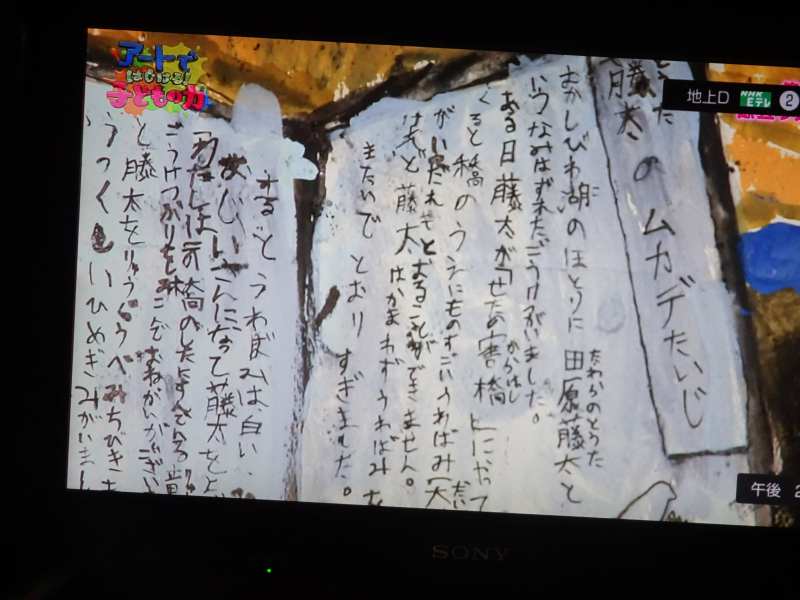 アートで
はじける!
子どもの力
地上D
NHK
Eテレ
2
午後
とうた
藤太のムカデたいじ
むかしびわ湖のほとりに田原藤太と
たわらのとうた
いうなみはずれたごうけついました。
ある日藤太が「せたの唐橋」にやって
からはし
くると橋のうえにものすごいうわばみ(大
がいてだれもとおることができません。
けれど藤太はかまわずうわばみを
またいでとおりすぎました。
するとうわばみは、白い
おじいさんになって藤太をよ
「わたしはこの橋のしたにすんでいる竜
ごうけつかりをみこんでおねがいがござい
と藤太をりゅうぐうへみちびきま
うつくしいひめぎみがいまし
SONY